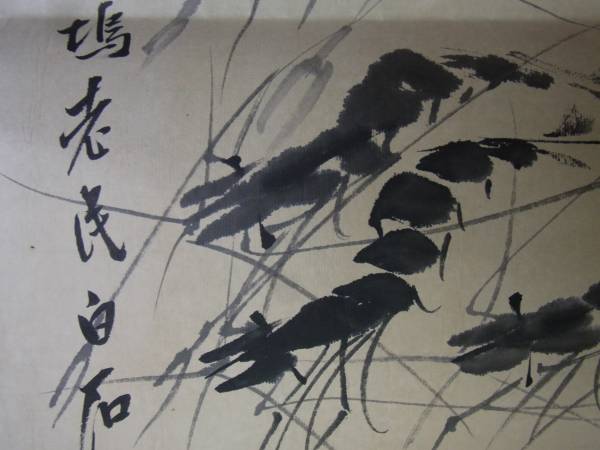 塢老民白石